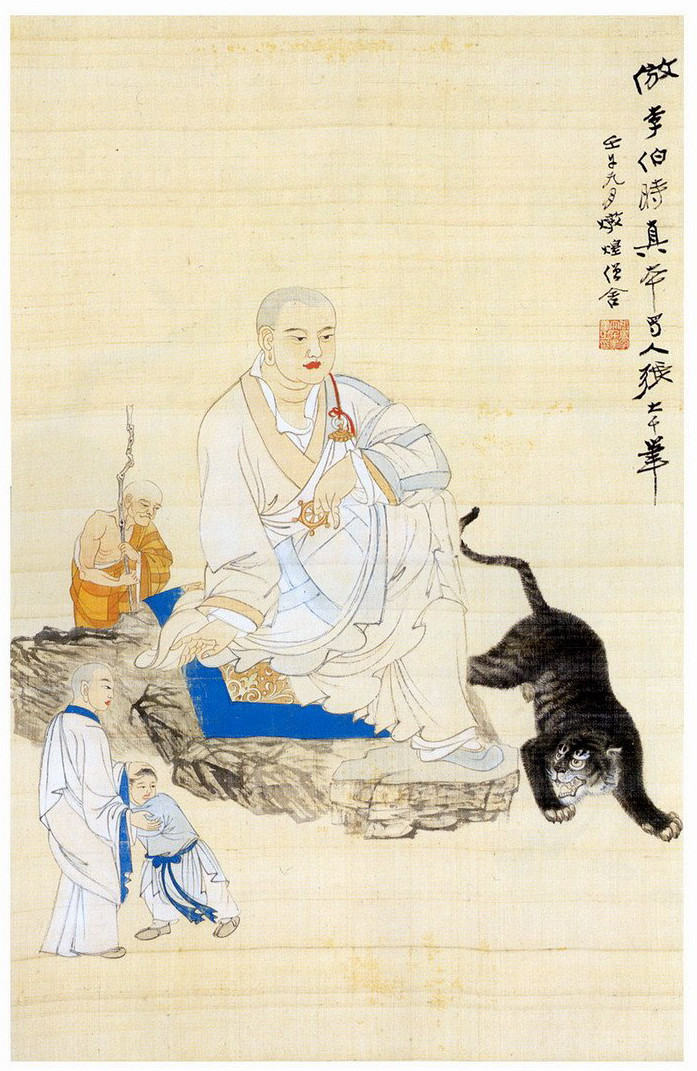 倣李伯時真本蜀人張大千筆
壬午九月燉煌僧舍